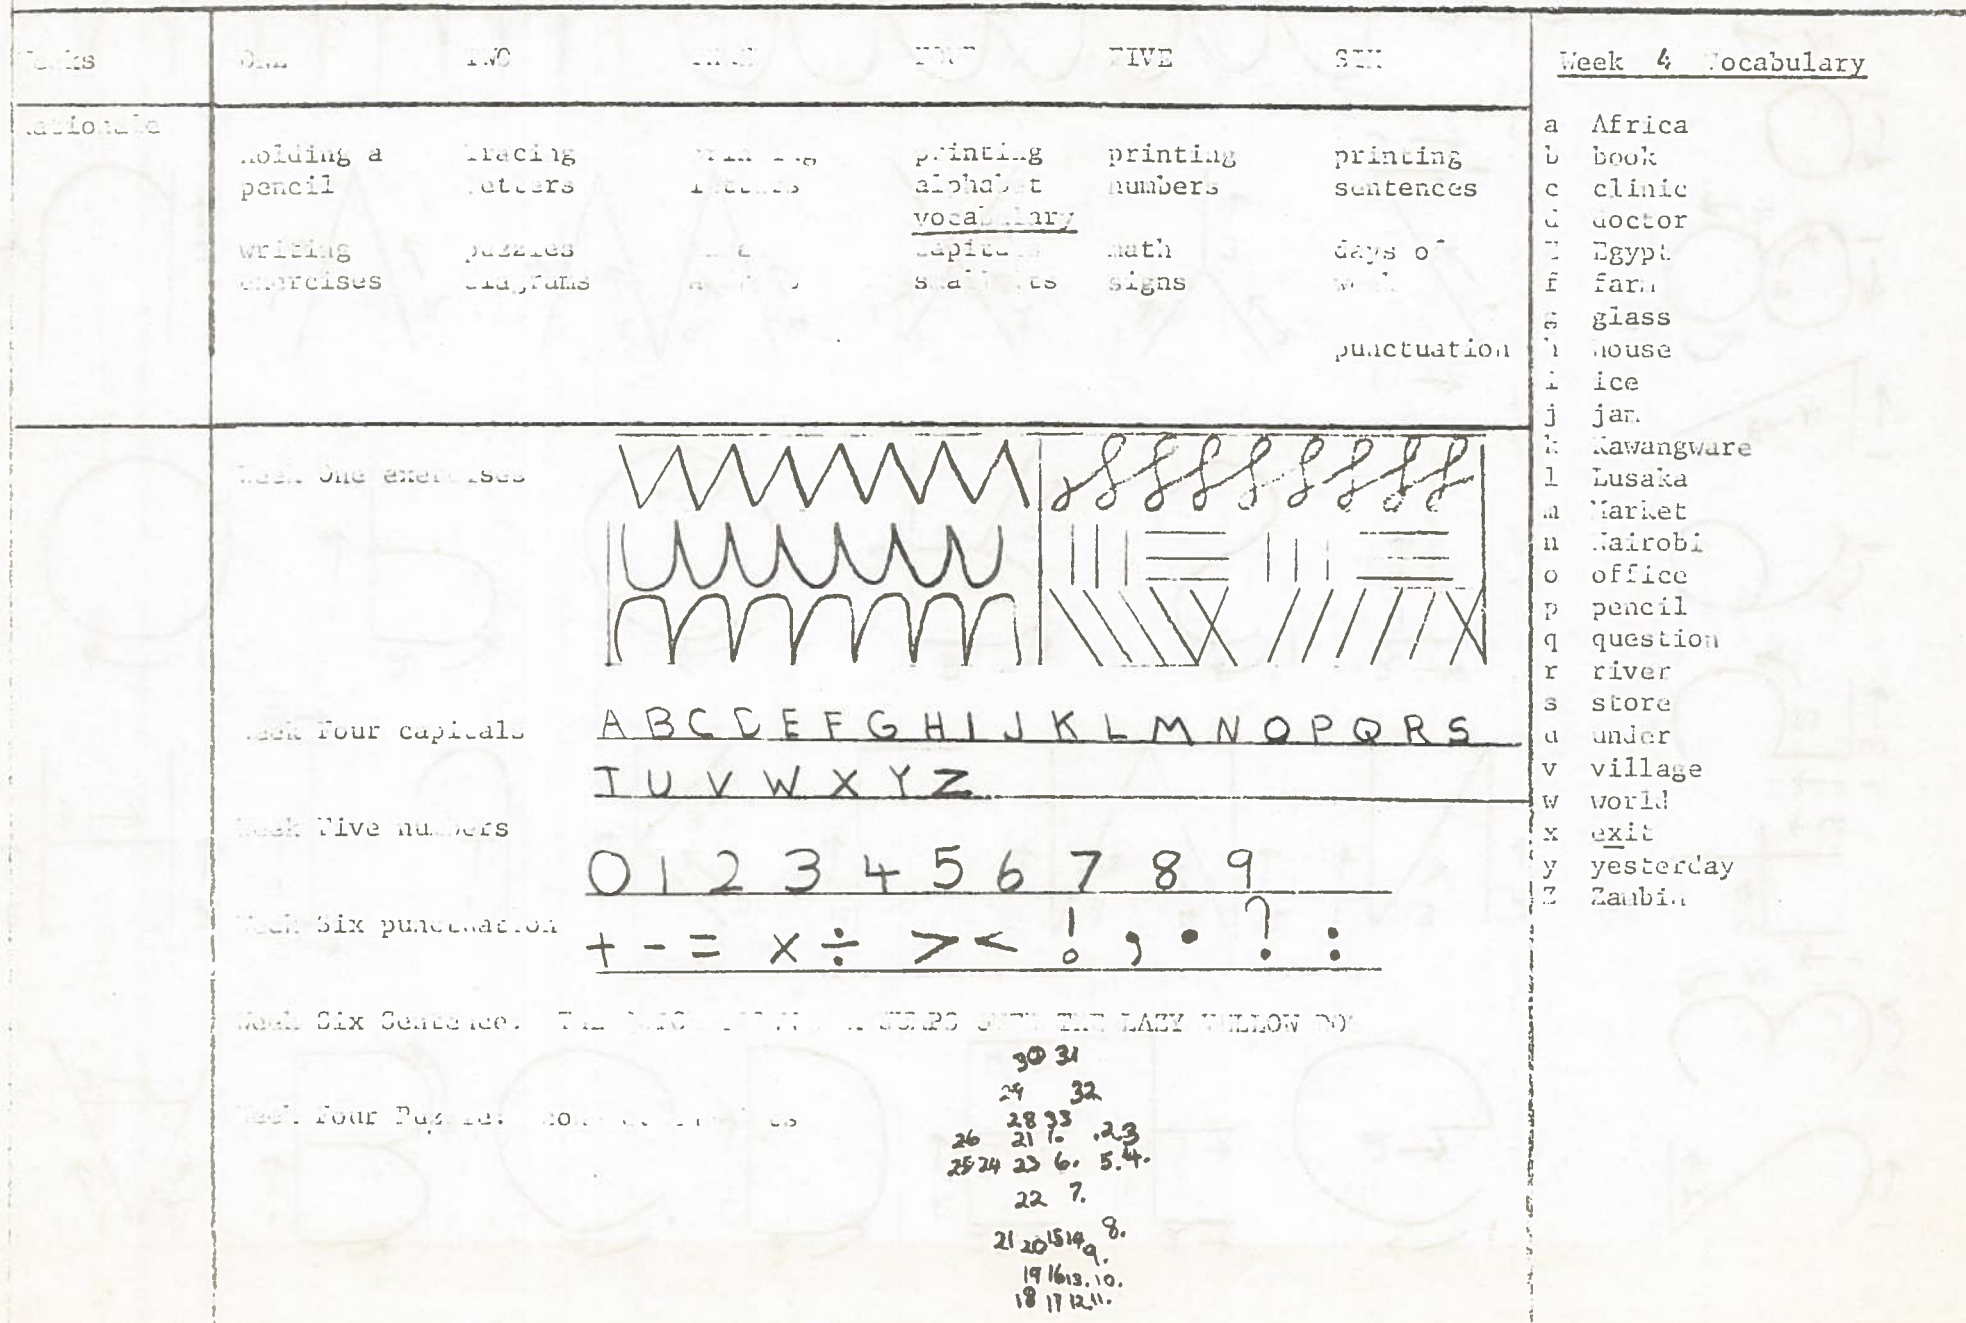 Weeks ONE TWO FOUR FIVE SIX
Rationale
holding a tracing printing printing printing printing
pencil letters letters alphabet numbers sentences
vocabulary
writing puzzles capitals math days of
exercises diagrams small signs week
punctuation
Week One exercises
Week Four capitals
A B C D E F G H I J K L M N O P Q R S
T U V W X Y Z
Week Five numbers
0 1 2 3 4 5 6 7 8 9
Week Six punctuation
+ - = x ÷ > < ! , . ? :
Week Six Sentence. JUMPS OVER THE LAZY YELLOW DOG
Week Four Puzzle.
30 31
29 32
28 33
26 21 1. .2 3
25 24 23 6. 5. 4.
22 7.
21 20 15 14 9. 8.
19 16 13. 10.
18 17 12. 11.
Week 4 Vocabulary
a Africa
b book
c clinic
d doctor
E Egypt
f farm
g glass
h house
i ice
j jar
k Kawangware
l Lusaka
m Market
n Nairobi
o office
p pencil
q question
r river
s store
u under
v village
w world
x exit
y yesterday
Z Zambia